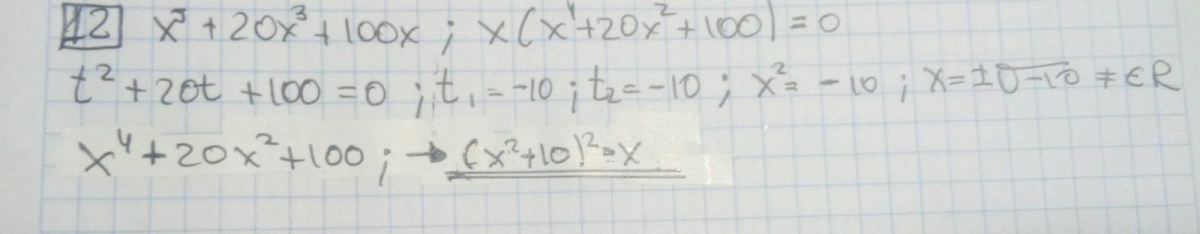 12 x⁵ + 20x³ + 100x ; x(x⁴+20x²+100) = 0
t² + 20t + 100 = 0 ; t₁ = -10 ; t₂ = -10 ; x² = -10 ; x = ±√-10 ≠ ∈ R
x⁴ + 20x² + 100 ; → (x²+10)² · x